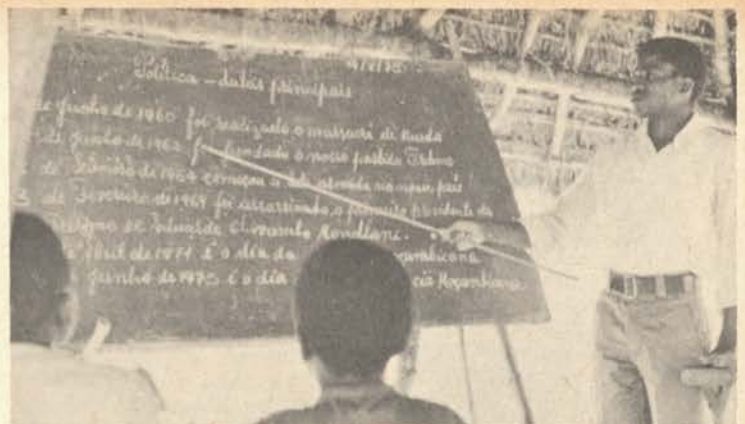 4/8/75
Política - datas principais
de Junho de 1960 foi realizado o massacre de Mueda
de Junho de 1962 foi fundado o nosso partido Frelimo
de Setembro de 1964 começou a luta armada no nosso país
3 de Fevereiro de 1969 foi assassinado o primeiro presidente da
Frelimo se Eduardo Chivambo Mondlane.
de Abril de 1971 é o dia da Moçambicana
Junho de 1975 é o dia cia Moçambicana